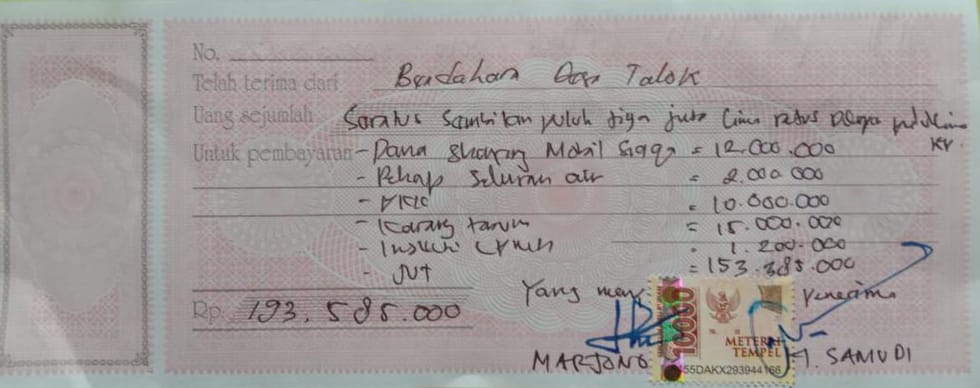 No.
Telah terima dari Bendahara Desa Talok
Uang sejumlah Seratus Sembilan puluh tiga juta lima ratus delapan puluh lima
Untuk pembayaran - Dana Sharing Mobil Siaga = 12.000.000
- Rehap Saluran air = 2.000.000
- = 10.000.000
- Karang taruna = 15.000.000
- = 1.200.000
- JUT = 153.385.000
Yang Penerima
Rp. 193.585.000
10000
METERAI
TEMPEL
55DAKX293944166
MARJONO H. SAMUDI